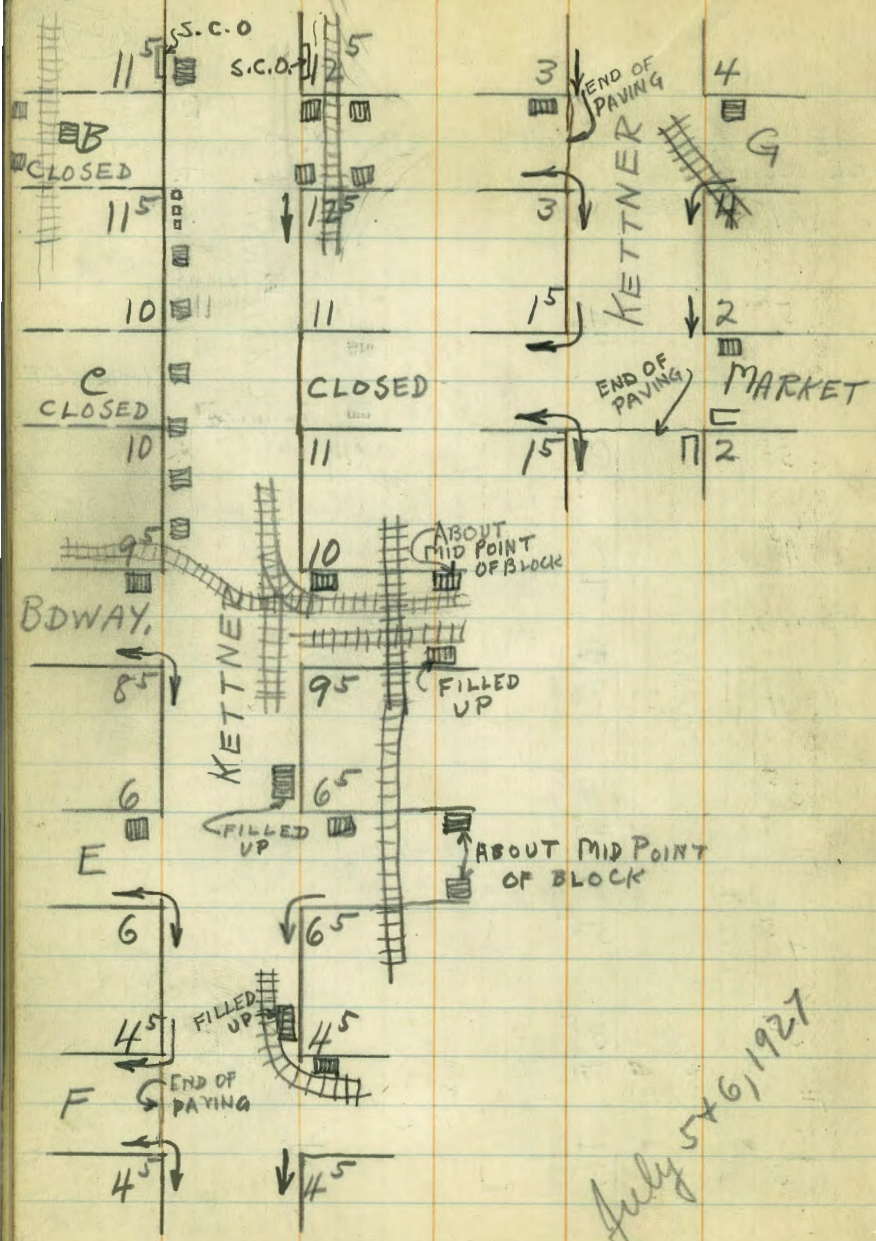 S.C.O
11⁵
S.C.O. 12⁵
B
CLOSED
11⁵
12⁵
10
11
C
CLOSED
CLOSED
10
11
9⁵
10
ABOUT
MID POINT
OF BLOCK
BDWAY.
KETTNER
8⁵
9⁵
FILLED
UP
6
6⁵
FILLED
UP
E
ABOUT MID POINT
OF BLOCK
6
6⁵
FILLED
UP
4⁵
4⁵
F
END OF
PAVING
4⁵
4⁵
3
END OF
PAVING
4
KETTNER
G
3
4
1⁵
2
END OF
PAVING
MARKET
1⁵
2
July 5+6, 1927